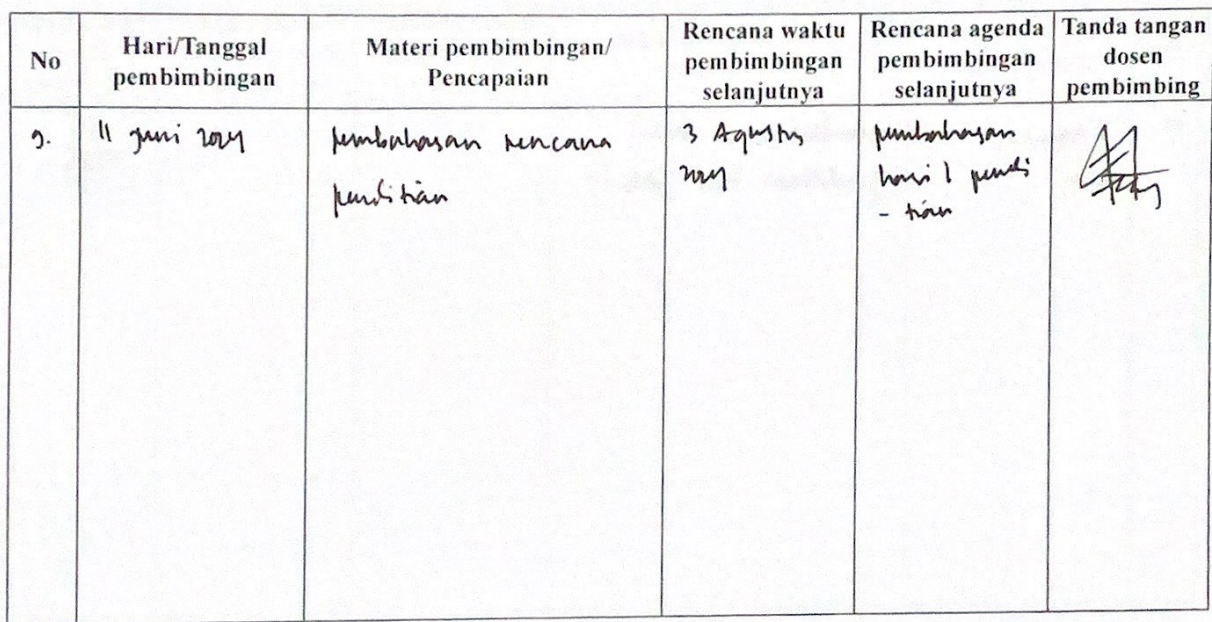 No
Hari/Tanggal
pembimbingan
Materi pembimbingan/
Pencapaian
Rencana waktu
pembimbingan
selanjutnya
Rencana agenda
pembimbingan
selanjutnya
Tanda tangan
dosen
pembimbing
11 Juni 2024
pembahasan rencana
penelitian
3 Agustus
2024
pembahasan
hasil peneli
- tian